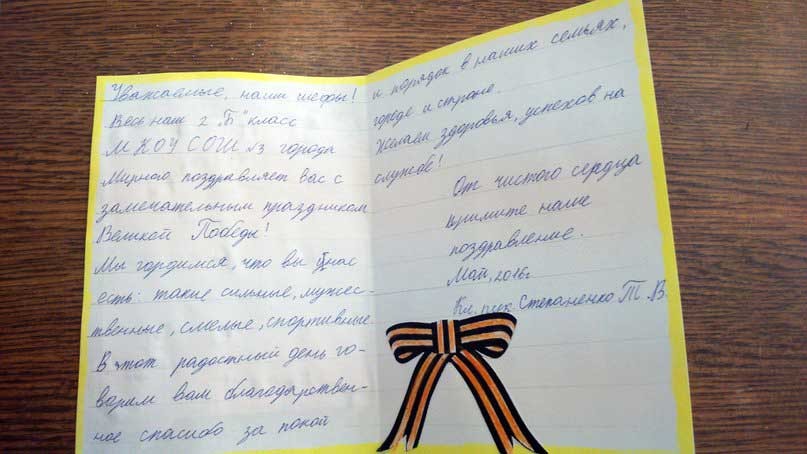 Уважаемые, наши шефы!
Весь наш 2 "Б" класс
МКОУ СОШ №3 города
Мирного поздравляет вас с
замечательным праздником
Великой Победы!
Мы гордимся, что вы у нас
есть: такие сильные, мужес-
твенные, смелые, спортивные.
В этот радостный день го-
ворим вам благодарствен-
ное спасибо за покой
и порядок в наших семьях,
городе и стране.
Желаем здоровья, успехов на
службе!
От чистого сердца
примите наше
поздравление.
Май, 2016г.
Кл. рук. Степаненко Т.В.